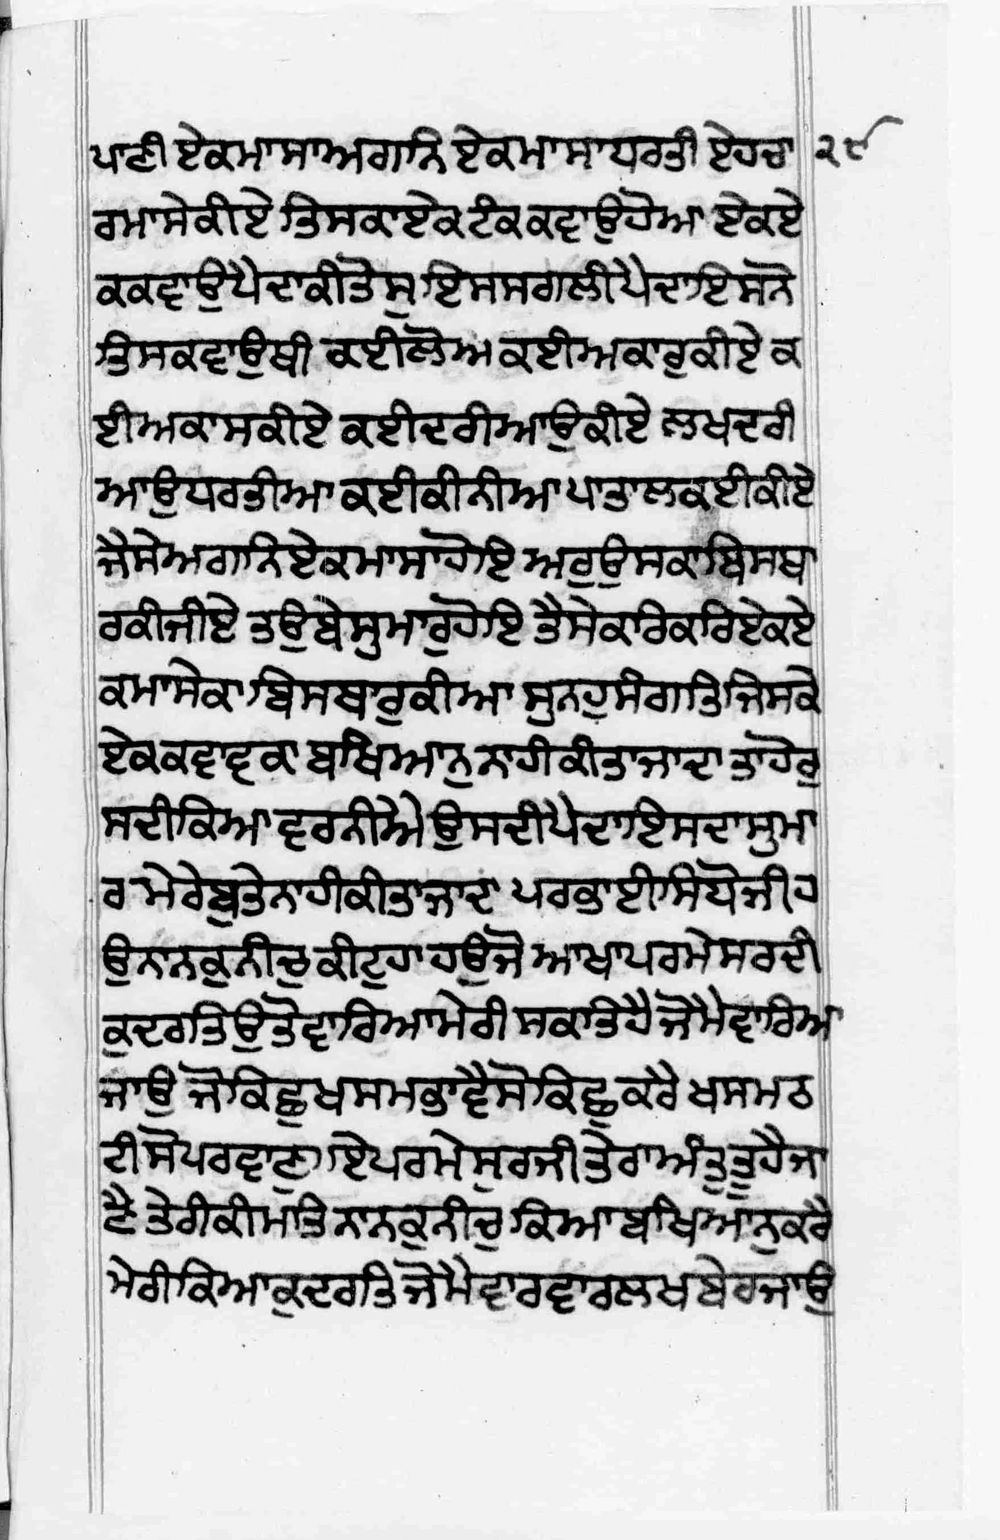 ਪਾਣੀ ਏਕਮਾਸਾਅਗਨਿ ਏਕਮਾਸਾਧਰਤੀ ਏਹਚਾ ੨੯
ਰਮਾਸੇਕੀਏ ਤਿਸਕਾਏਕਟੰਕਕਵਾਉਹੋਆ ਏਕਏ
ਕਕਵਾਉਪੈਦਾਕੀਤੋਸੁ ਇਸਸਗਲੀਪੈਦਾਇਸਨੋ
ਤਿਸਕਵਾਉਥੀ ਕਈਲੋਅਕਈਅਕਾਰੁਕੀਏ ਕ
ਈਅਕਾਸਕੀਏ ਕਈਦਰੀਆਉਕੀਏ ਲਖਦਰੀ
ਆਉਧਰਤੀਆ ਕਈਕੀਨੀਆ ਪਾਤਾਲਕਈਕੀਏ
ਜੈਸੇਅਗਨਿਏਕਮਾਸਾਹੋਇ ਅਰੁਉਸਕਾਬਿਸਥਾ
ਰਕੀਜੀਏ ਤਉਬੇਸੁਮਾਰੁਹੋਇ ਤੈਸੇਕਰਿਕਰਿਏਕਏ
ਕਮਾਸੇਕਾ ਬਿਸਥਾਰੁਕੀਆ ਸੁਨਹੁਸੰਗਤਿਜਿਸਕੇ
ਏਕਕਵਾਵਕਾ ਬਖਿਆਨੁਨਾਹੀਕੀਤਾਜਾਦਾ ਤਾਹੋਰੁ
ਸਦੀਕਿਆਵਰਨੀਐ ਉਸਦੀਪੈਦਾਇਸਦਾਸੁਮਾ
ਰ ਮੇਰੇਬੂਤੇਨਾਹੀਕੀਤਾਜਾਦਾ ਪਰਭਾਈਸਿਧੋਜੀਹ
ਉਨਾਨਕੁਨੀਚੁਕੀਟੁਹਾਹਉਜੋ ਆਖਾਪਰਮੇਸਰਦੀ
ਕੁਦਰਤਿਉਤੋਵਾਰਿਆਮੇਰੀ ਸਕਤਿਹੈਜੋਮੈਵਾਰਿਆ
ਜਾਉ ਜੋਕਿਛੁਖਸਮਭਾਵੈਸੋਕਿਛੁਕਰੈ ਖਸਮਠ
ਟੀਸੋਪਰਵਾਣੁ ਏਪਰਮੇਸੁਰਜੀਤੇਰਾਅੰਤੁਤੂਹੈਜਾ
ਣੈ ਤੇਰੀਕੀਮਤਿ ਨਾਨਕੁਨੀਚੁ ਕਿਆਬਖਿਆਨੁਕਰੈ
ਮੇਰੀਕਿਆਕੁਦਰਤਿ ਜੋਮੈਵਾਰਵਾਰਲਖਬੇਰਜਾਉ